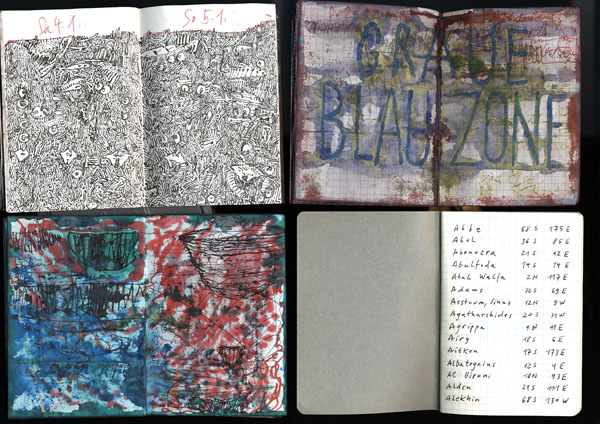 Sa 4.1.
So 5.1.
GRAUE
BLAU ZONE
Abbe 58 S 175 E
Abel 36 S 85 E
Abenezra 21 S 12 E
Abulfeda 14 S 14 E
Abul Wafa 2 N 117 E
Adams 32 S 69 E
Aestuum, Sinus 12 N 9 W
Agatharchides 20 S 31 W
Agrippa 4 N 11 E
Airy 18 S 6 E
Aitken 17 S 173 E
Albategnius 12 S 4 E
Al Biruni 18 N 93 E
Alden 24 S 111 E
Alekhin 68 S 130 W